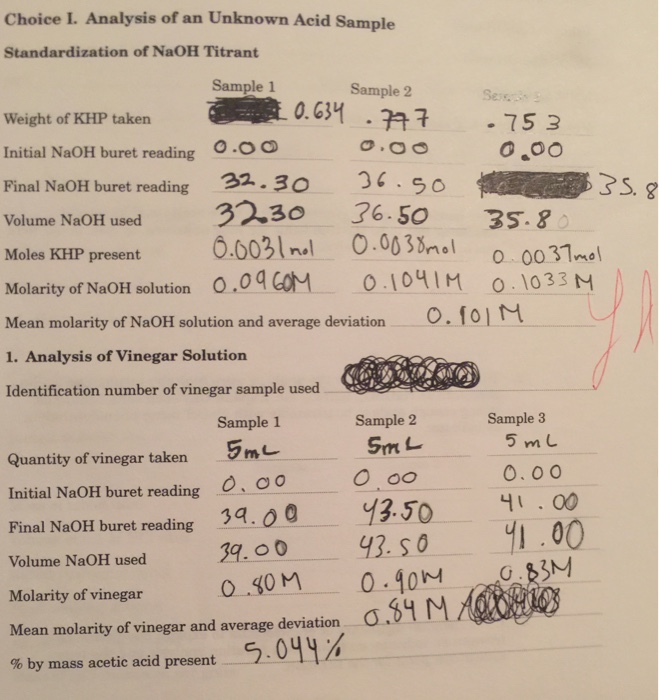 Choice I. Analysis of an Unknown Acid Sample
Standardization of NaOH Titrant
Sample 1 Sample 2
Weight of KHP taken 0.634 .777 .753
Initial NaOH buret reading 0.00 0.00 0.00
Final NaOH buret reading 32.30 36.50 35.8
Volume NaOH used 32.30 36.50 35.80
Moles KHP present 0.0031mol 0.0038mol 0.0037mol
Molarity of NaOH solution 0.0960M 0.1041M 0.1033M
Mean molarity of NaOH solution and average deviation 0.101M
1. Analysis of Vinegar Solution
Identification number of vinegar sample used
Sample 1 Sample 2 Sample 3
Quantity of vinegar taken 5mL 5mL 5mL
Initial NaOH buret reading 0.00 0.00 0.00
Final NaOH buret reading 39.00 43.50 41.00
Volume NaOH used 39.00 43.50 41.00
Molarity of vinegar 0.80M 0.90M 0.83M
Mean molarity of vinegar and average deviation 0.84M
% by mass acetic acid present 5.044%